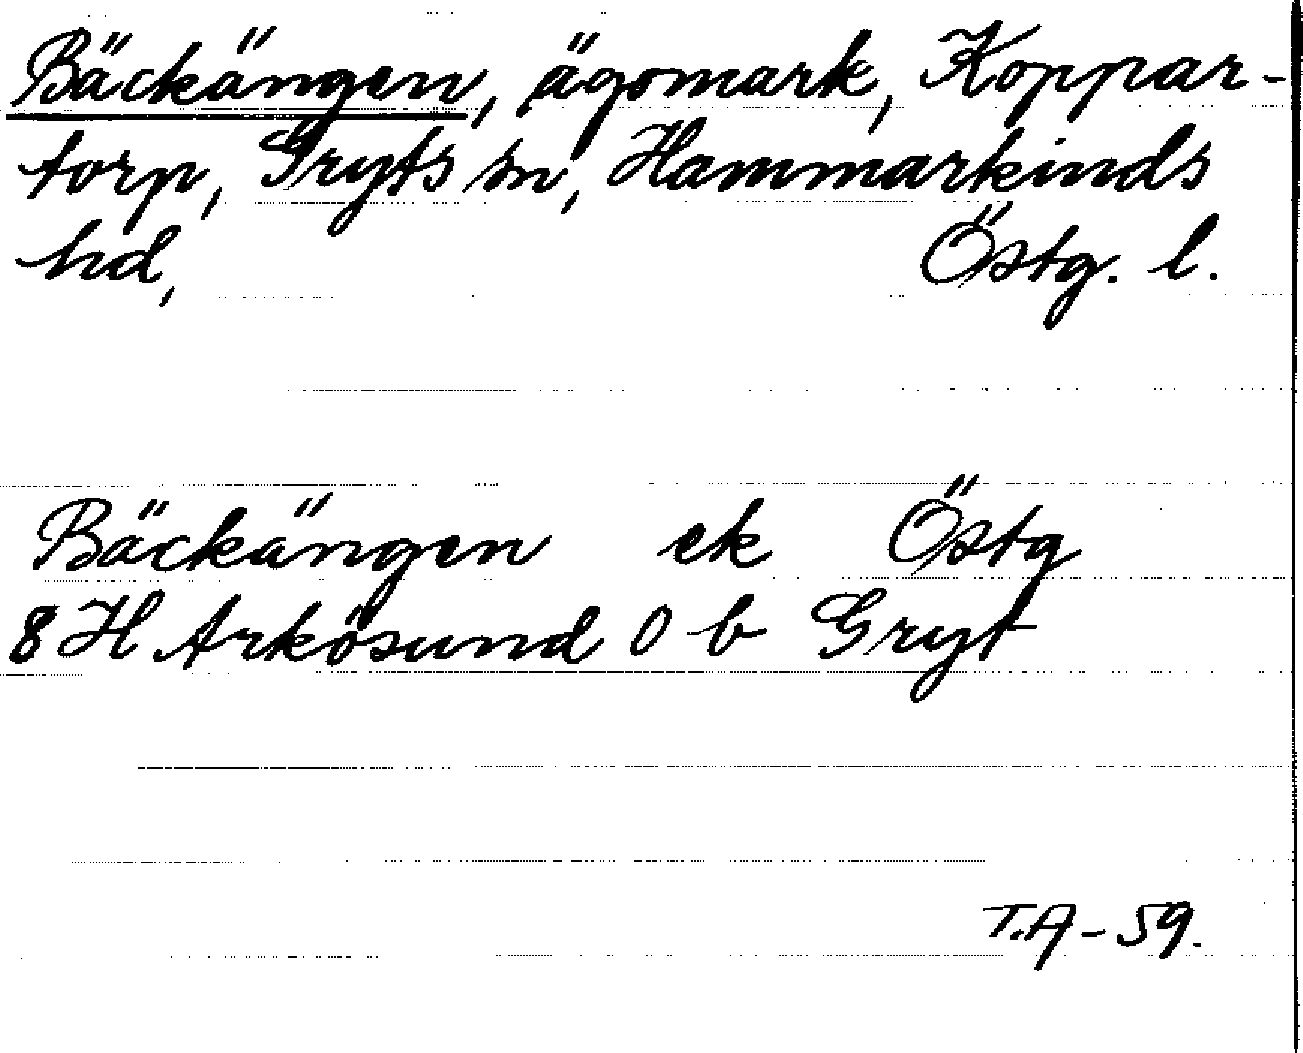 Bäckängen, ägomark, Koppar-
torp, Gryts sn, Hammarkinds
hd, Östg. l.
Bäckängen ek Östg
8 H Arkösund 0 b Gryt
T.A-59.